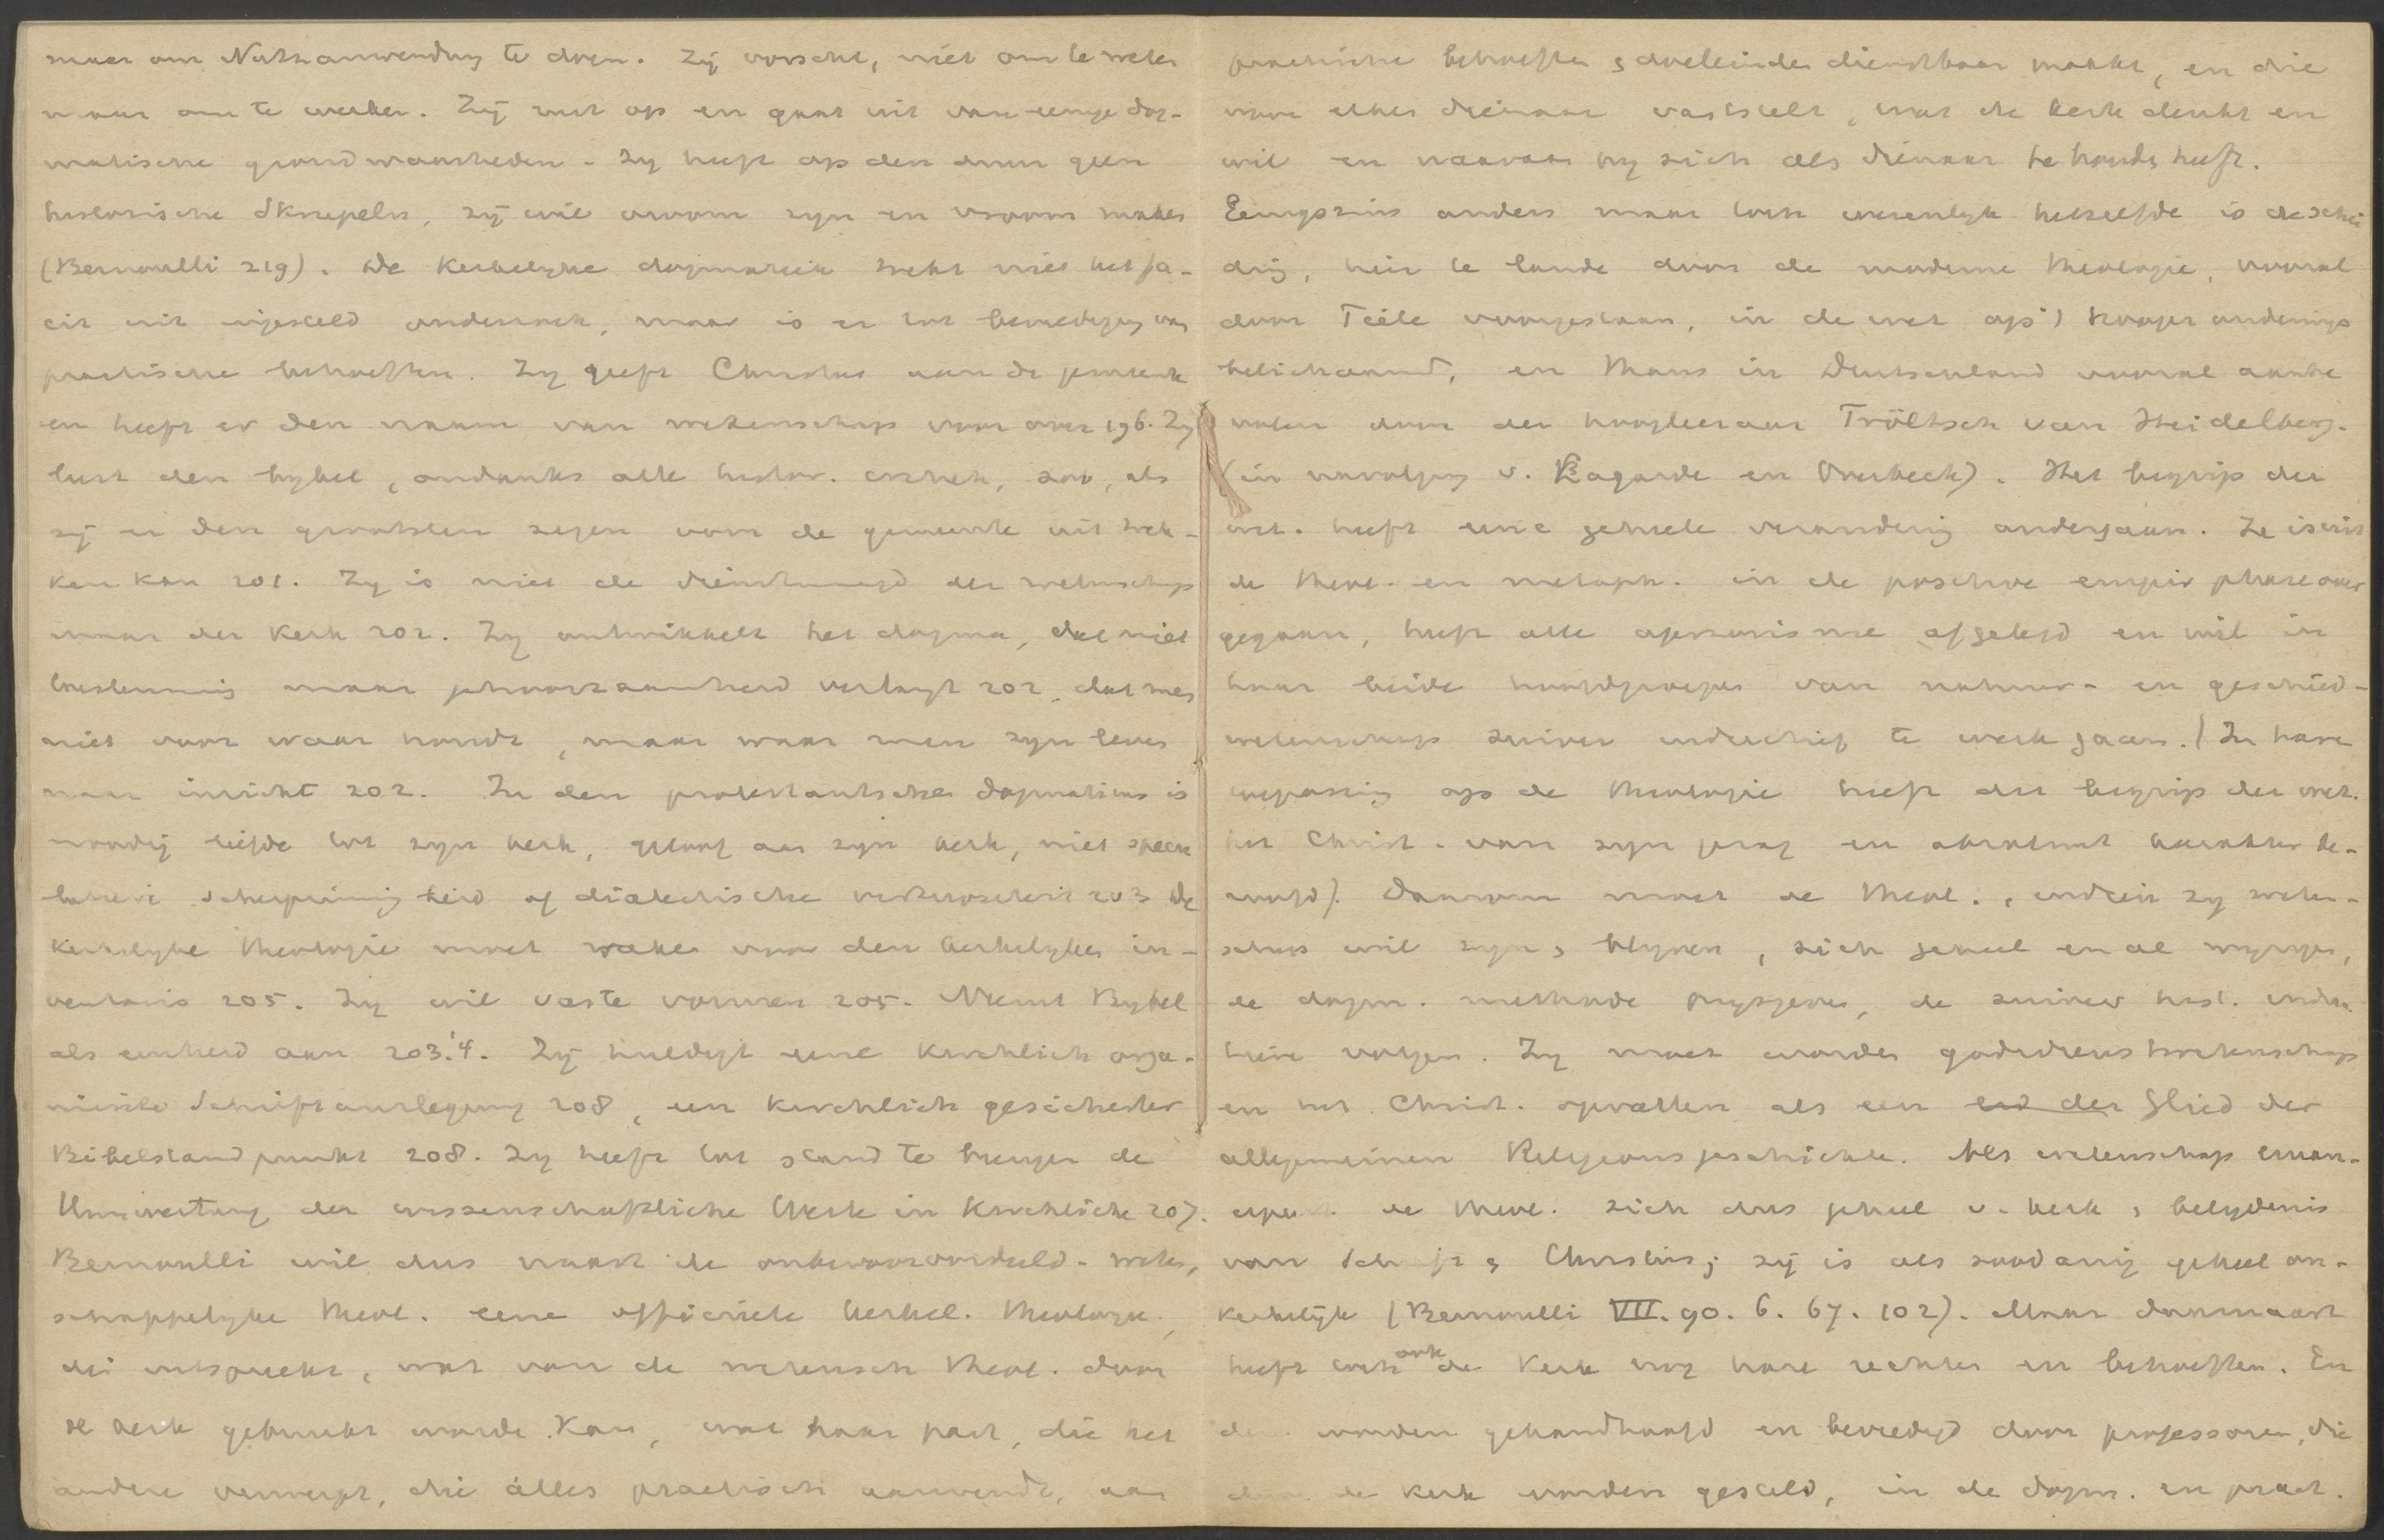 maar om Nutzanwendung te doen. Zij vorscht, niet om te weten
maar om te werken. Zij rust op en gaat uit van eenige dog-
matische grondwaarheden. Zij heeft op den duur geen
historische Skrupeln, zij wil vroom zijn en vroom maken
(Bernoulli 219). De kerkelijke dogmatiek trekt niet het fa-
cit uit ingesteld onderzoek, maar is er tot bevrediging van
practische behoeften. Zij geeft Christus aan de gemeente
en heeft er den naam van wetenschap voor over 196. Zij
leest den bijbel, ondanks alle histor. critiek, zoo, als
zij er den grootsten zegen voor de gemeente uit trek-
ken kan 201. Zij is niet de dienstmaagd der wetenschap
maar der kerk 202. Zij ontwikkelt het dogma, dat niet
toestemming maar gehoorzaamheid verlangt 202, dat men
niet voor waar houdt, maar waar men zijn leven
naar inricht 202. In den protestantschen dogmaticus is
noodig liefde tot zijn kerk, geloof aan zijn kerk, niet specu
latieve scherpzinnigheid of dialectische 203 De
kerkelijke theologie moet waken voor den kerkelijken in-
ventaris 205. Zij wil vaste vormen 205. Neemt Bijbel
als eenheid aan 203.'4. Zij huldigt eene kirchlich orga-
nisirte Schriftauslegung 208, een kirchlich gesicherter
Bibelstandpunkt 208. Zij heeft tot stand te brengen de
Umwertung der wissenschaftliche Werte in Kirchliche 207.
Bernoulli wil dus naast de onbevooroordeeld-weten,
schappelijke theol. eene officiëele kerkel. theologie,
die uitspreekt, wat van de wetensch theol. door
de kerk gebruikt worden kan, wat haar past, die het
andere verwerpt, die alles practisch aanwendt, aan
practische behoeften & doeleinden dienstbaar maakt, en die
voor elken dienaar vaststelt, wat de kerk denkt en
wil en waaraan hij zich als dienaar te houden heeft.
Eenigszins anders maar toch wezenlijk hetzelfde is de schei
ding, hier te lande door de moderne theologie, vooral
door Tiele voorgestaan, in de wet op 't hooger onderwijs
belichaamd, en thans in Duitschland vooral aanbe
volen door den hoogleeraar Tröltsch van Heidelberg.
(in navolging v. Lagarde en Overbeck). Het begrip der
wet. heeft eene geheele verandering ondergaan. Ze is uit
de theol. en metaph. in de positive empir phase over
gegaan, heeft alle apriorisme afgelegd en wil in
haar beide hoofdgroepen van natuur- en geschied-
wetenschap zuiver inductief te werk gaan. (In hare
toepassing op de theologie heeft dit begrip der wet.
het Christ. van zijn gezag en absoluut karakter be-
roofd). Daarom moet de theol., indien zij weten-
schap wil zijn & blijven, zich geheel en al wijzigen,
de dogm. methode prijsgeven, de zuiver hist. methode
volgen. Zij moet worden godsdienstwetenschap
en het Christ. opvatten als een Glied der
allgemeinen Religionsgeschichte. Als wetenschap eman-
cipeert de theol. zich dus geheel v. kerk & belijdenis
van Schrift & Christus; zij is als zoodanig geheel on-
kerkelijk (Bernoulli VII. 90. 6. 67. 102). Maar daarnaast
heeft toch ook de kerk nog hare rechten en behoeften. En
die worden gehandhaafd en bevredigd door professoren, die
door de kerk worden gesteld, in de dogm. en pract.